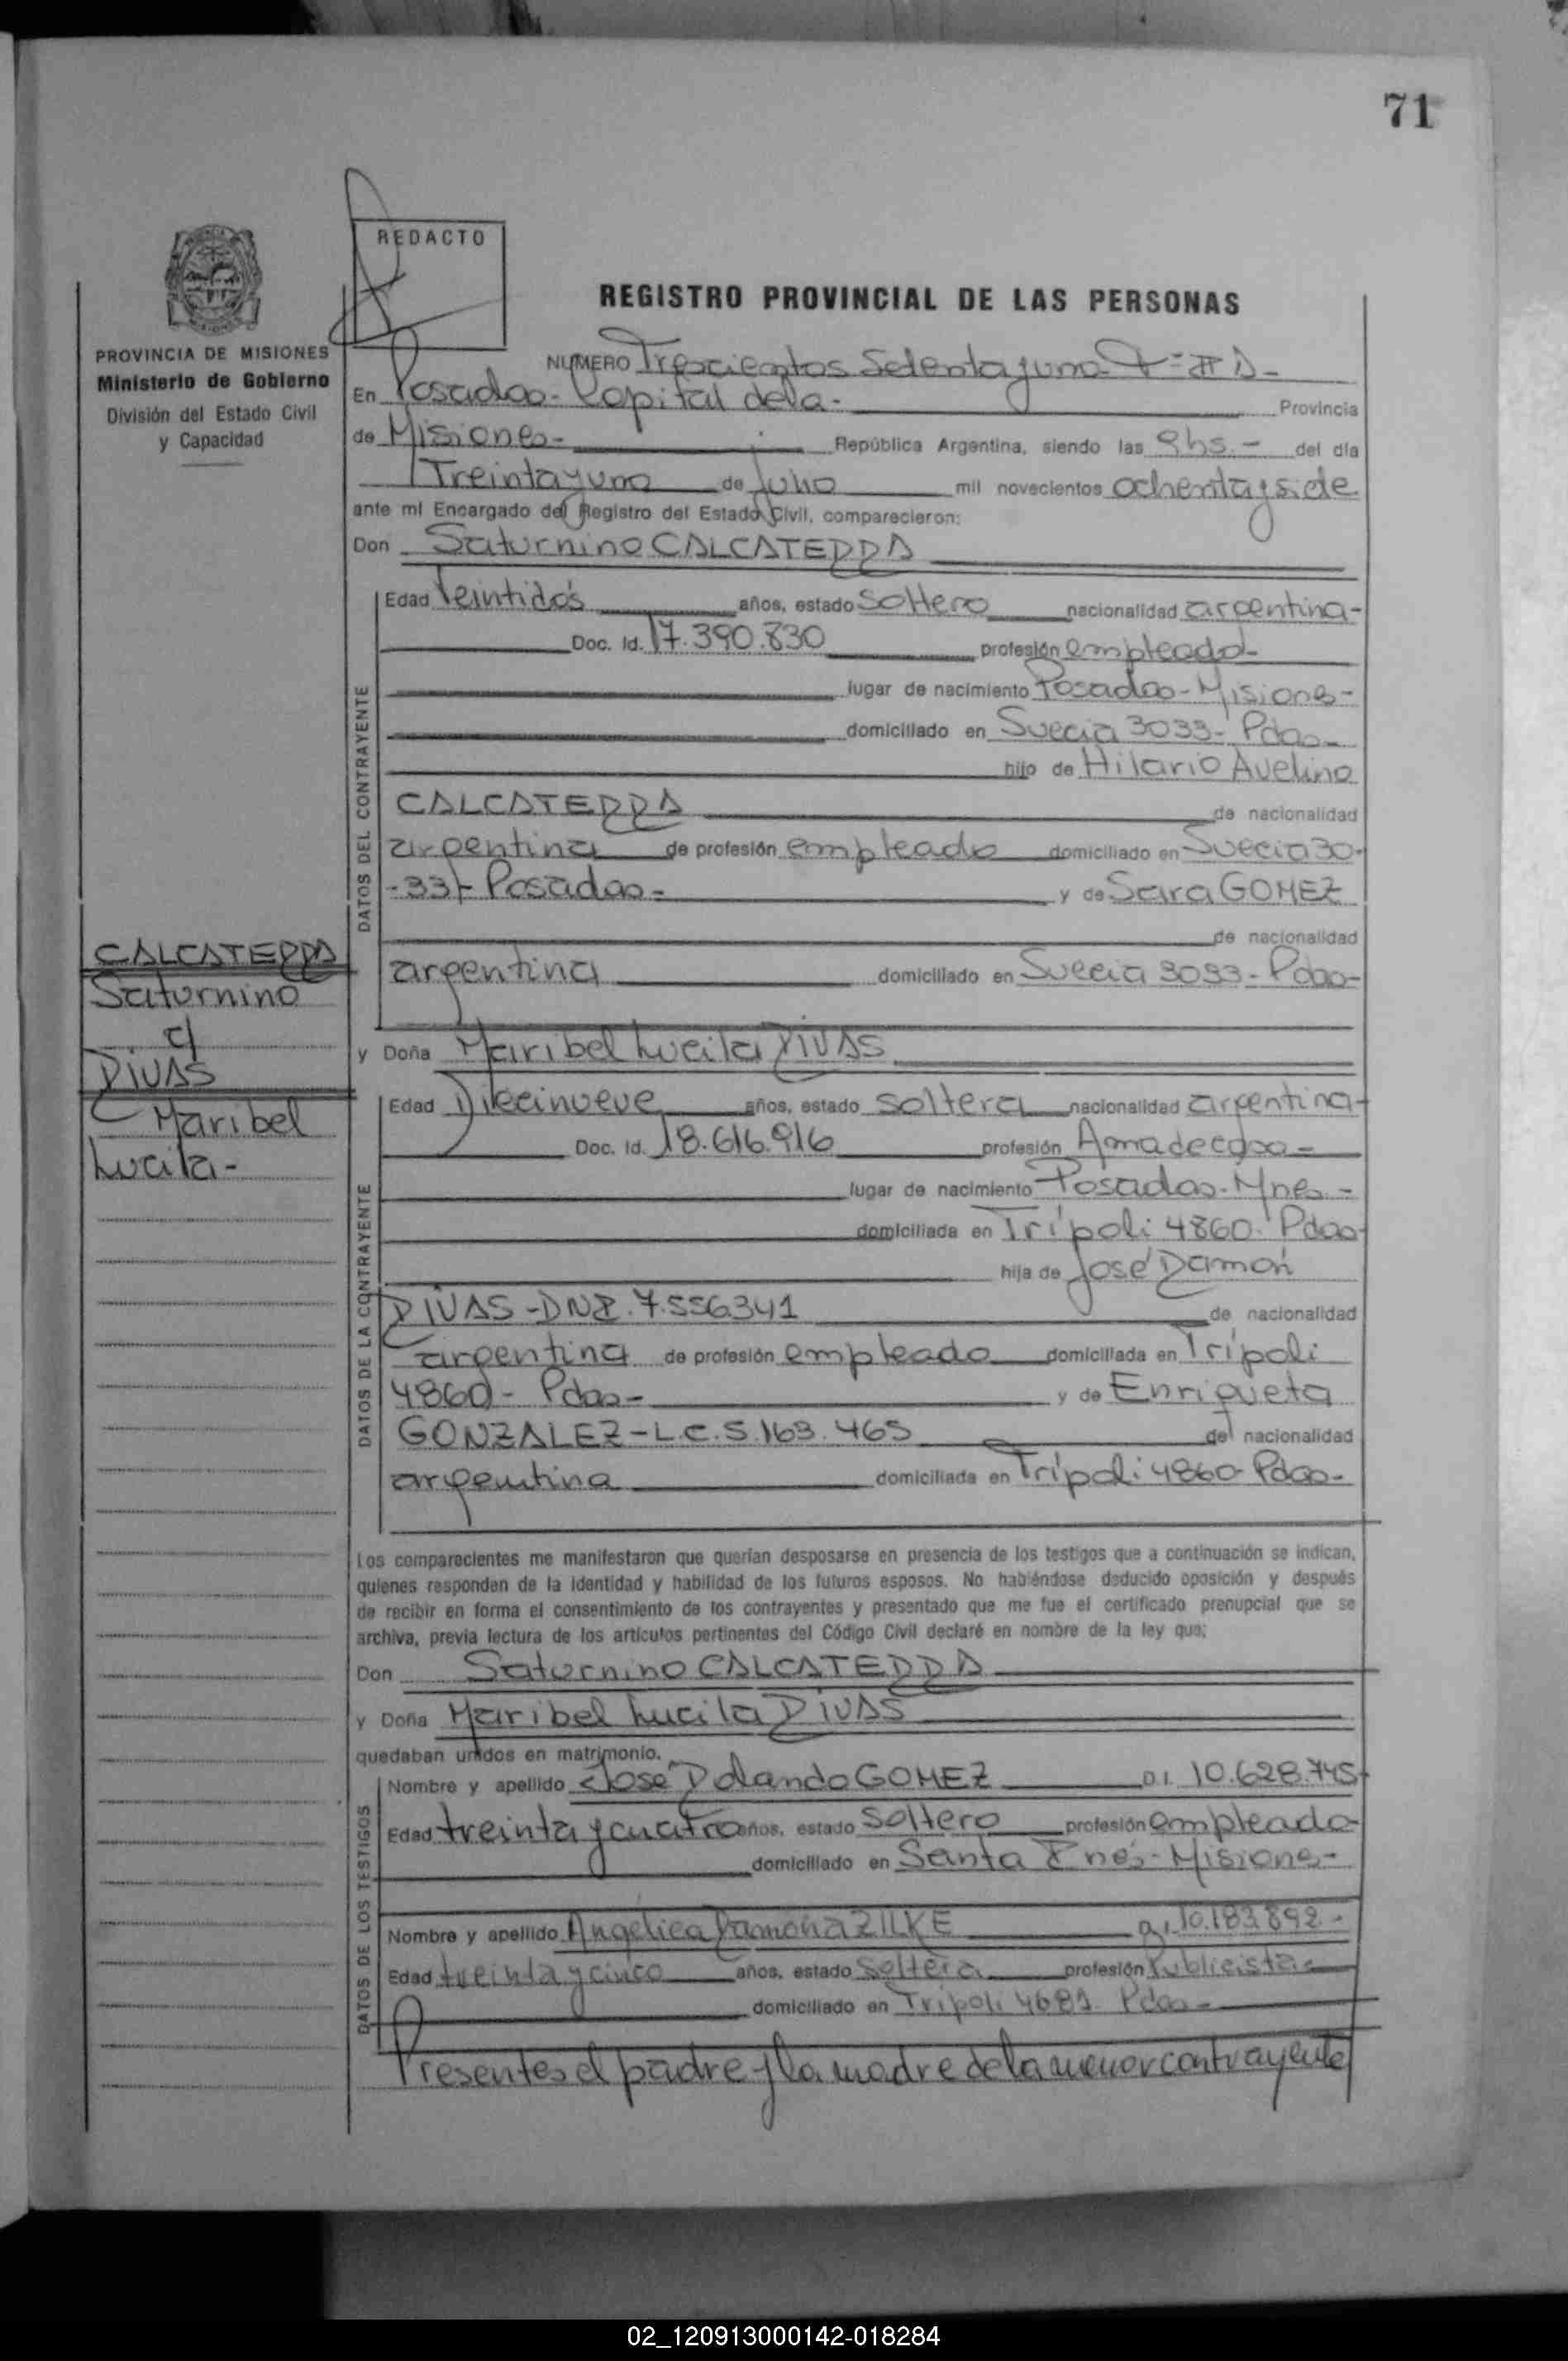 71
REDACTO
REGISTRO PROVINCIAL DE LAS PERSONAS
PROVINCIA DE MISIONES
Ministerio de Gobierno
División del Estado Civil
y Capacidad
NUMERO Trescientos Setenta y uno
En Posadas - Capital de la - Provincia
de Misiones - República Argentina, siendo las 9hs. - del día
Treinta y uno de Julio mil novecientos ochenta y siete
ante mi Encargado del Registro del Estado Civil, comparecieron:
Don Saturnino CALCATERRA
DATOS DEL CONTRAYENTE
Edad Veintidós años, estado Soltero nacionalidad argentina-
Doc. Id. 17.390.830 profesión empleado-
lugar de nacimiento Posadas - Misiones-
domiciliado en Suecia 3033 - Pdas-
hijo de Hilario Avelino
CALCATERRA de nacionalidad
argentina de profesión empleado domiciliado en Suecia 30-
-33- Posadas- y de Sara GOMEZ
de nacionalidad
argentina domiciliado en Suecia 3033 - Pdas-
CALCATERRA
Saturnino
c/
RIVAS
Maribel
Lucila-
y Doña Maribel Lucila RIVAS
DATOS DE LA CONTRAYENTE
Edad Diecinueve años, estado soltera nacionalidad argentina-
Doc. Id. 18.616.916 profesión Ama de casa-
lugar de nacimiento Posadas - Mnes-
domiciliada en Trípoli 4860 - Pdas-
hija de José Ramón
RIVAS - DNI. 7.556.341 de nacionalidad
argentina de profesión empleado domiciliada en Trípoli
4860 - Pdas- y de Enriqueta
GONZALEZ - L.C. 5.163.465 de nacionalidad
argentina domiciliada en Trípoli 4860 - Pdas-
Los comparecientes me manifestaron que querían desposarse en presencia de los testigos que a continuación se indican,
quienes responden de la identidad y habilidad de los futuros esposos. No habiéndose deducido oposición y después
de recibir en forma el consentimiento de los contrayentes y presentado que me fue el certificado prenupcial que se
archiva, previa lectura de los artículos pertinentes del Código Civil declaré en nombre de la ley que;
Don Saturnino CALCATERRA
y Doña Maribel Lucila RIVAS
quedaban unidos en matrimonio.
DATOS DE LOS TESTIGOS
Nombre y apellido José Rolando GOMEZ D.I. 10.628.745-
Edad treinta y cuatro años, estado Soltero profesión empleado
domiciliado en Santa Inés - Misiones-
Nombre y apellido Angélica Ramona ZILKE D.I. 10.183.892-
Edad treinta y cinco años, estado Soltera profesión Publicista-
domiciliado en Trípoli 4681 - Pdas-
Presentes el padre y la madre de la menor contrayente
02_120913000142-018284